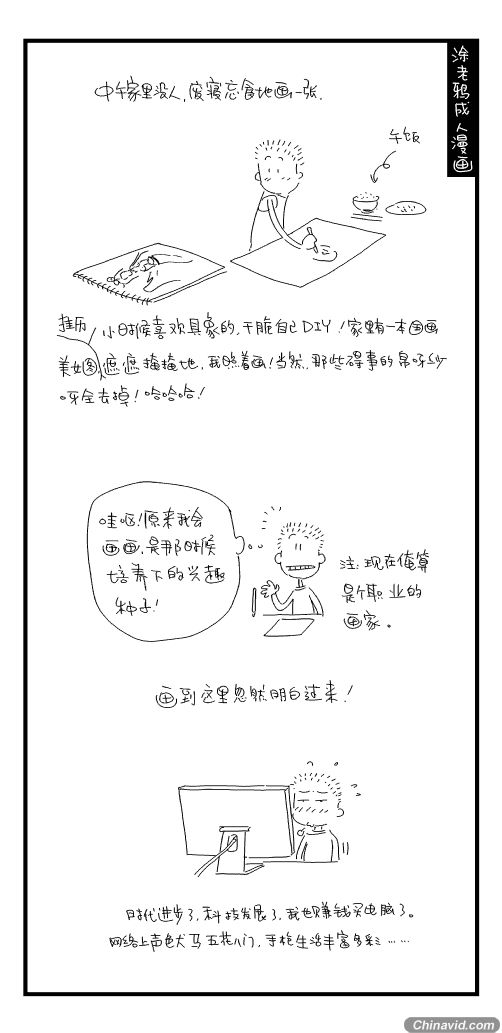 涂老鸦成人漫画
中午家里没人，废寝忘食地画一张．
午饭
挂历
小时候喜欢具象的，干脆自己DIY！家里有一本国画
美女图，遮遮掩掩地，我照着画！当然，那些碍事的帛呀纱
呀全去掉！哈哈哈！
哇呕！原来我会
画画，是那时候
培养下的兴趣
种子！
注：现在俺算
是个职业的
画家。
画到这里忽然明白过来！
时代进步了，科技发展了，我也赚钱买电脑了。
网络上声色犬马五花八门，手枪生活丰富多彩……
Chinavid.com